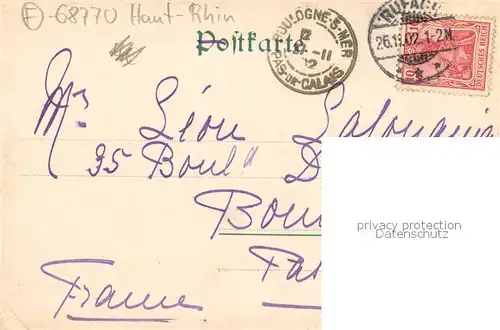 F -68770 Haut-Rhin
Postkarte.
BOULOGNE-S-MER
2
27-11
02
PAS-DE-CALAIS
RUFACH
26.11.02.1-2N.
DEUTSCHES REICH
Mr Léon
35 Boul.d
France
privacy protection
Datenschutz